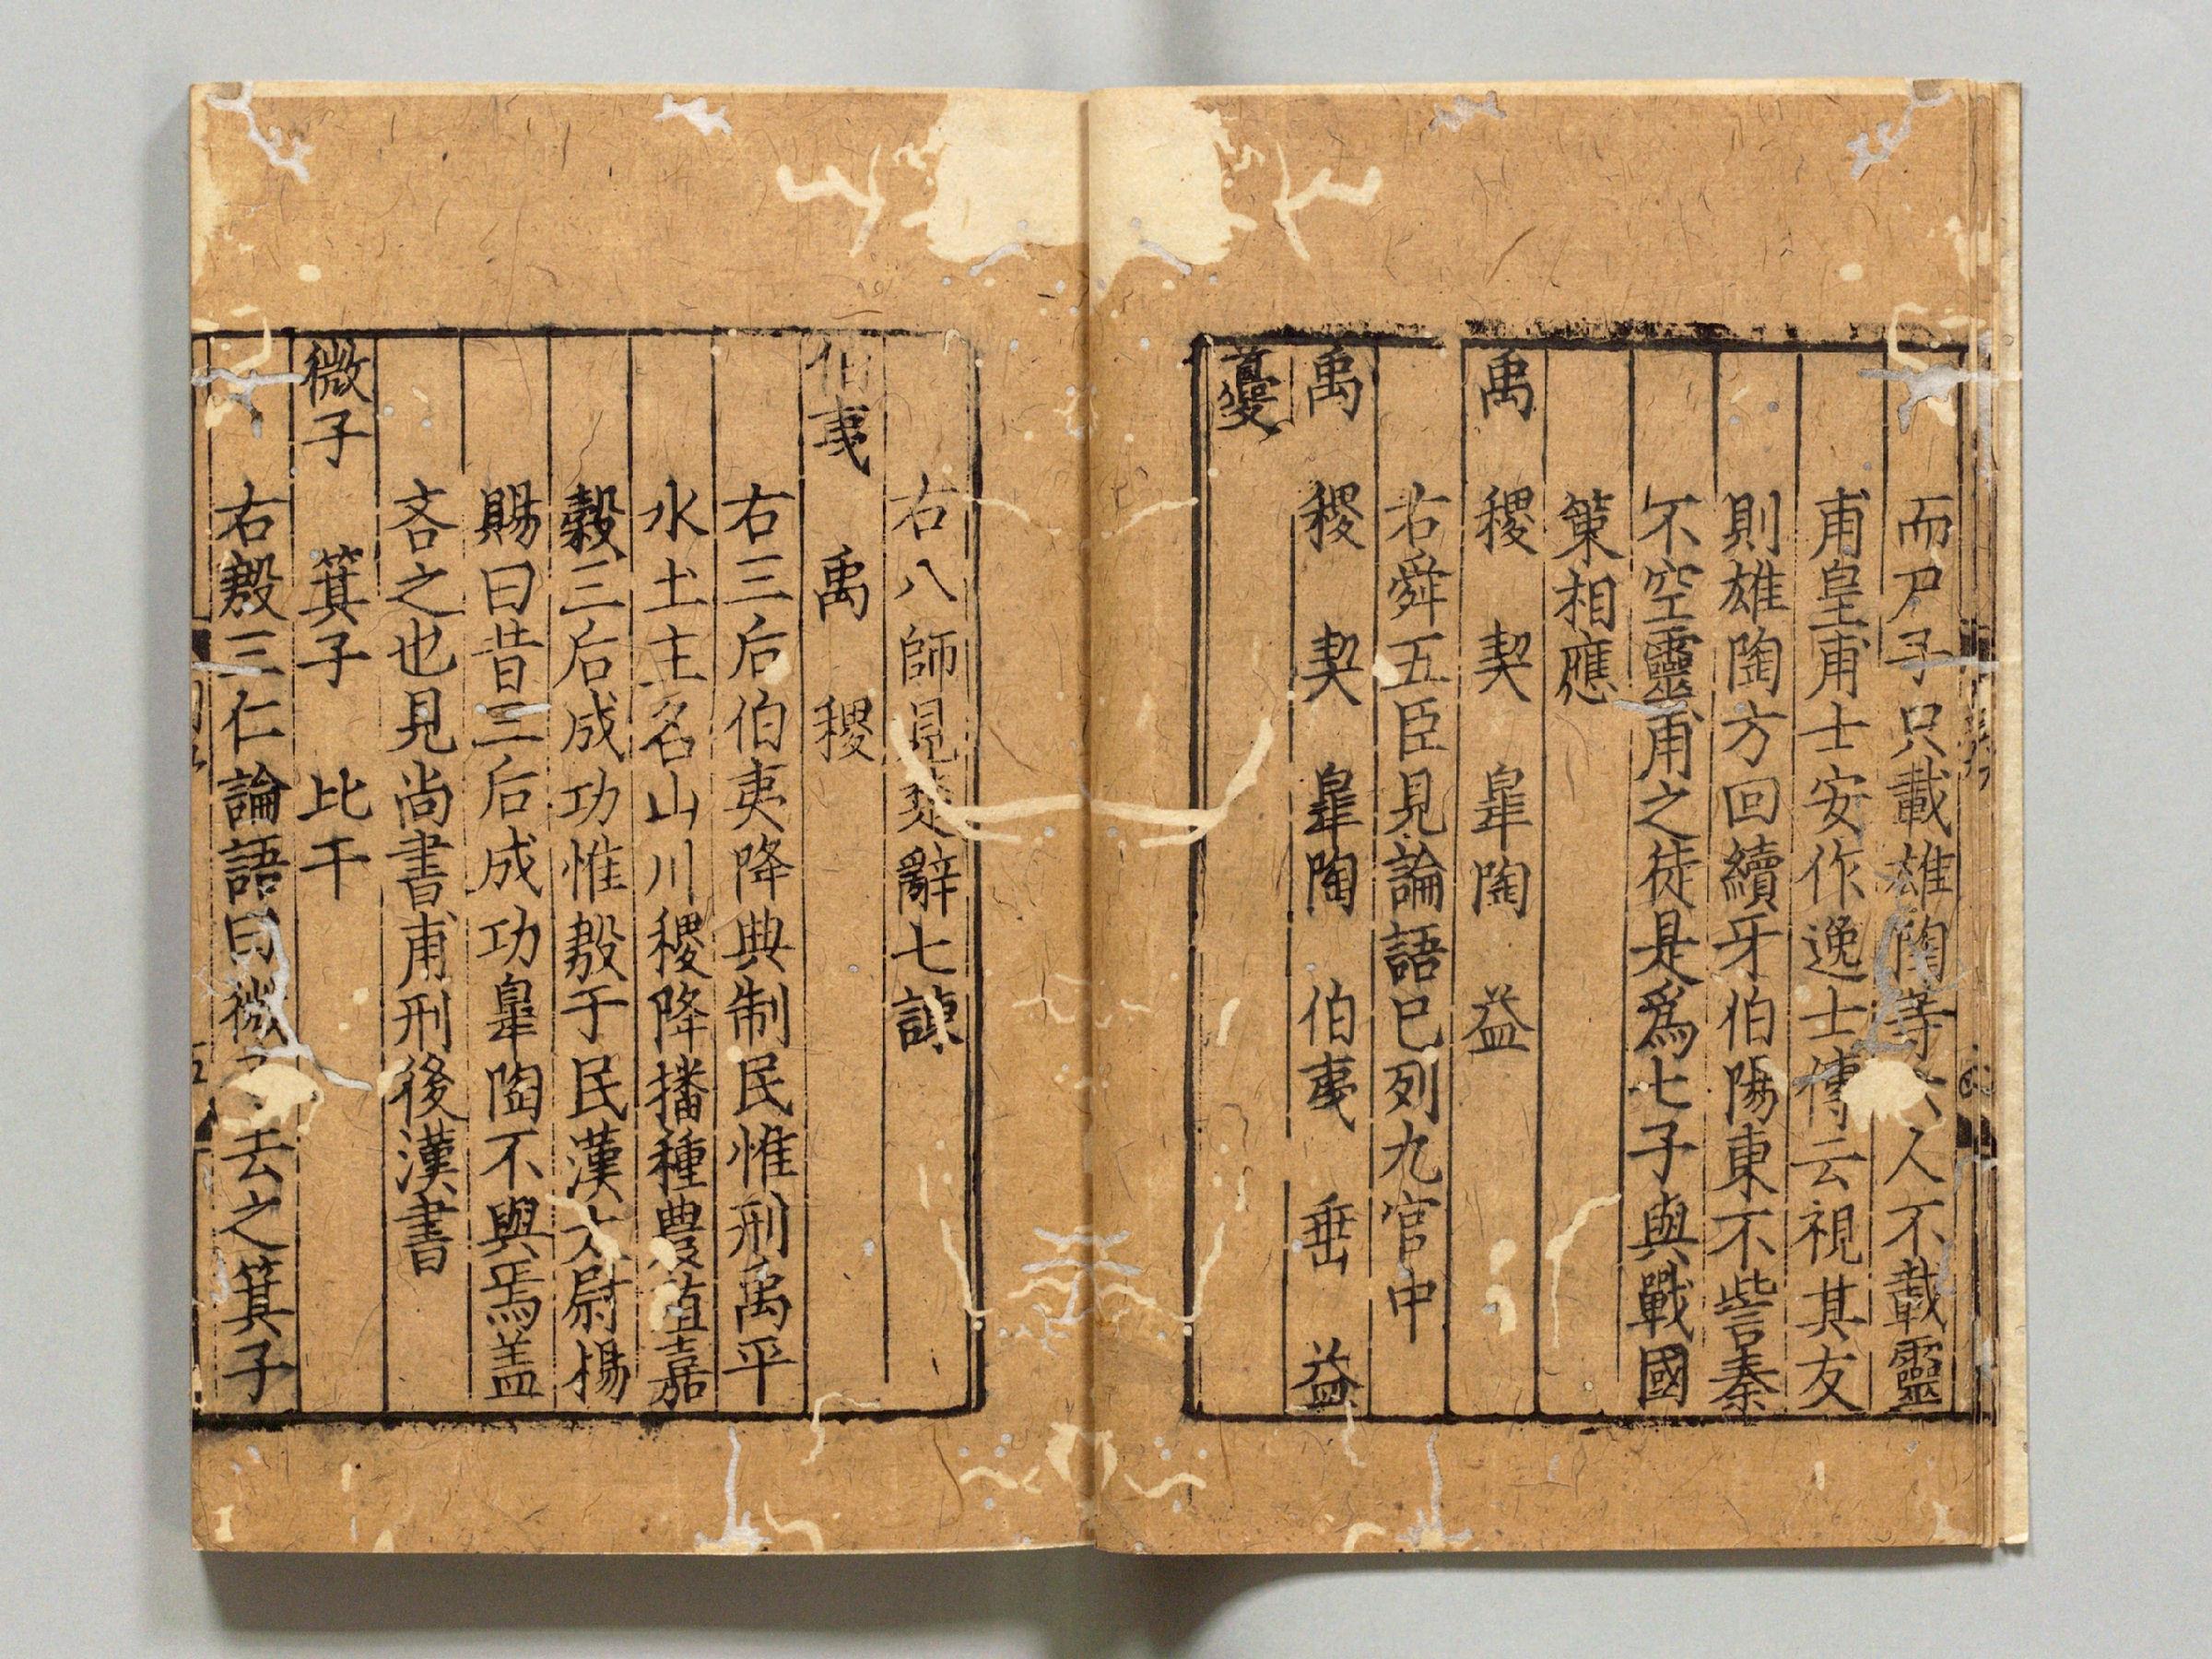 而尸子只載雄陶等六人不載靈
甫皇甫士安作逸士傳云視其友
則雄陶方回續牙伯陽東不訾秦
不空靈甫之徒是爲七子與戰國
策相應
禹 稷 契 皐陶 益
右舜五臣見論語已列九官中
禹 稷 契 皐陶 伯夷 垂 益
夔
右八師見楚辭七諫
伯夷 禹 稷
右三后伯夷降典制民惟刑禹平
水土主名山川稷降播種農殖嘉
穀三后成功惟殷于民漢太尉楊
賜曰昔三后成功皐陶不與焉盖
吝之也見尚書甫刑後漢書
微子 箕子 比干
右殷三仁論語曰微子去之箕子